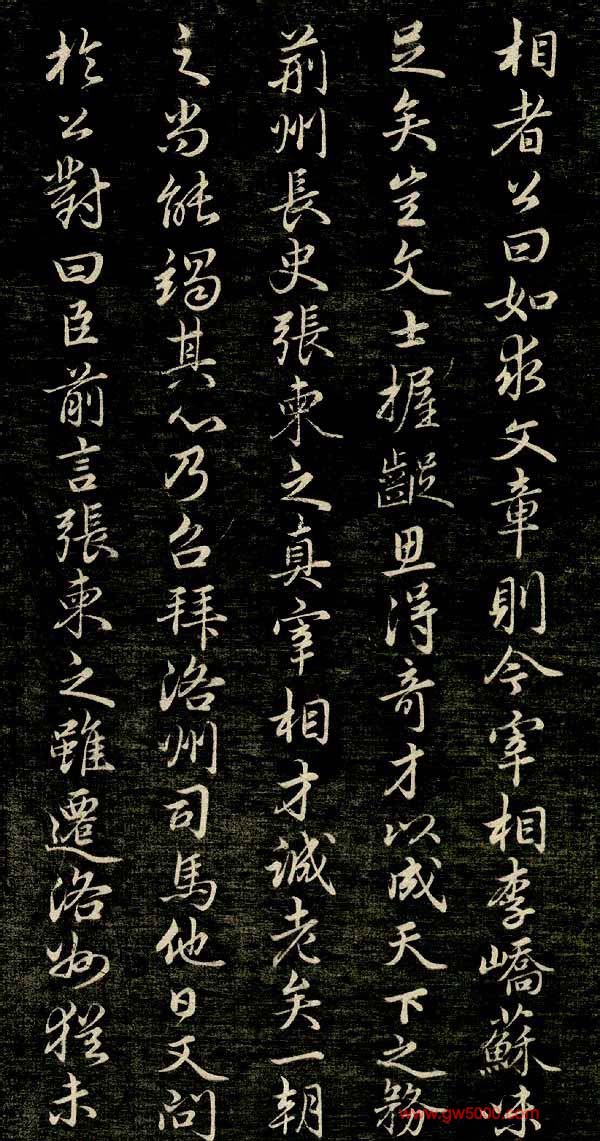 相者公曰如求文章則今宰相李嶠蘇味
足矣豈文士握齪思得奇才以成天下之務
荊州長史張柬之真宰相才誠老矣一朝
之尚能竭其心乃召拜洛州司馬他日又問
於公對曰臣前言張柬之雖遷洛州猶未
www.gw5000.com